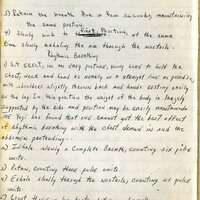 3) Retain the breath for a few seconds, maintaining the same position.
4) Slowly sink to First Position, at the same time slowly exhaling the air through the nostrils.
Rhythmic Breathing
1) Sit erect, in an easy posture, being sure to hold the chest, neck and head as nearly in a straight line as possible, with shoulders slightly thrown back and hands resting easily on the lap. In this position the weight of the body is largely supported by the ribs and position may be easily maintained. The Yogi has found that one cannot get the best effect of rhythmic breathing with the chest drawn in and the abdomen protruding.
2) Inhale slowly a Complete Breath, counting six pulse units.
3) Retain, counting three pulse units.
4) Exhale slowly through the nostrils, counting six pulse units.